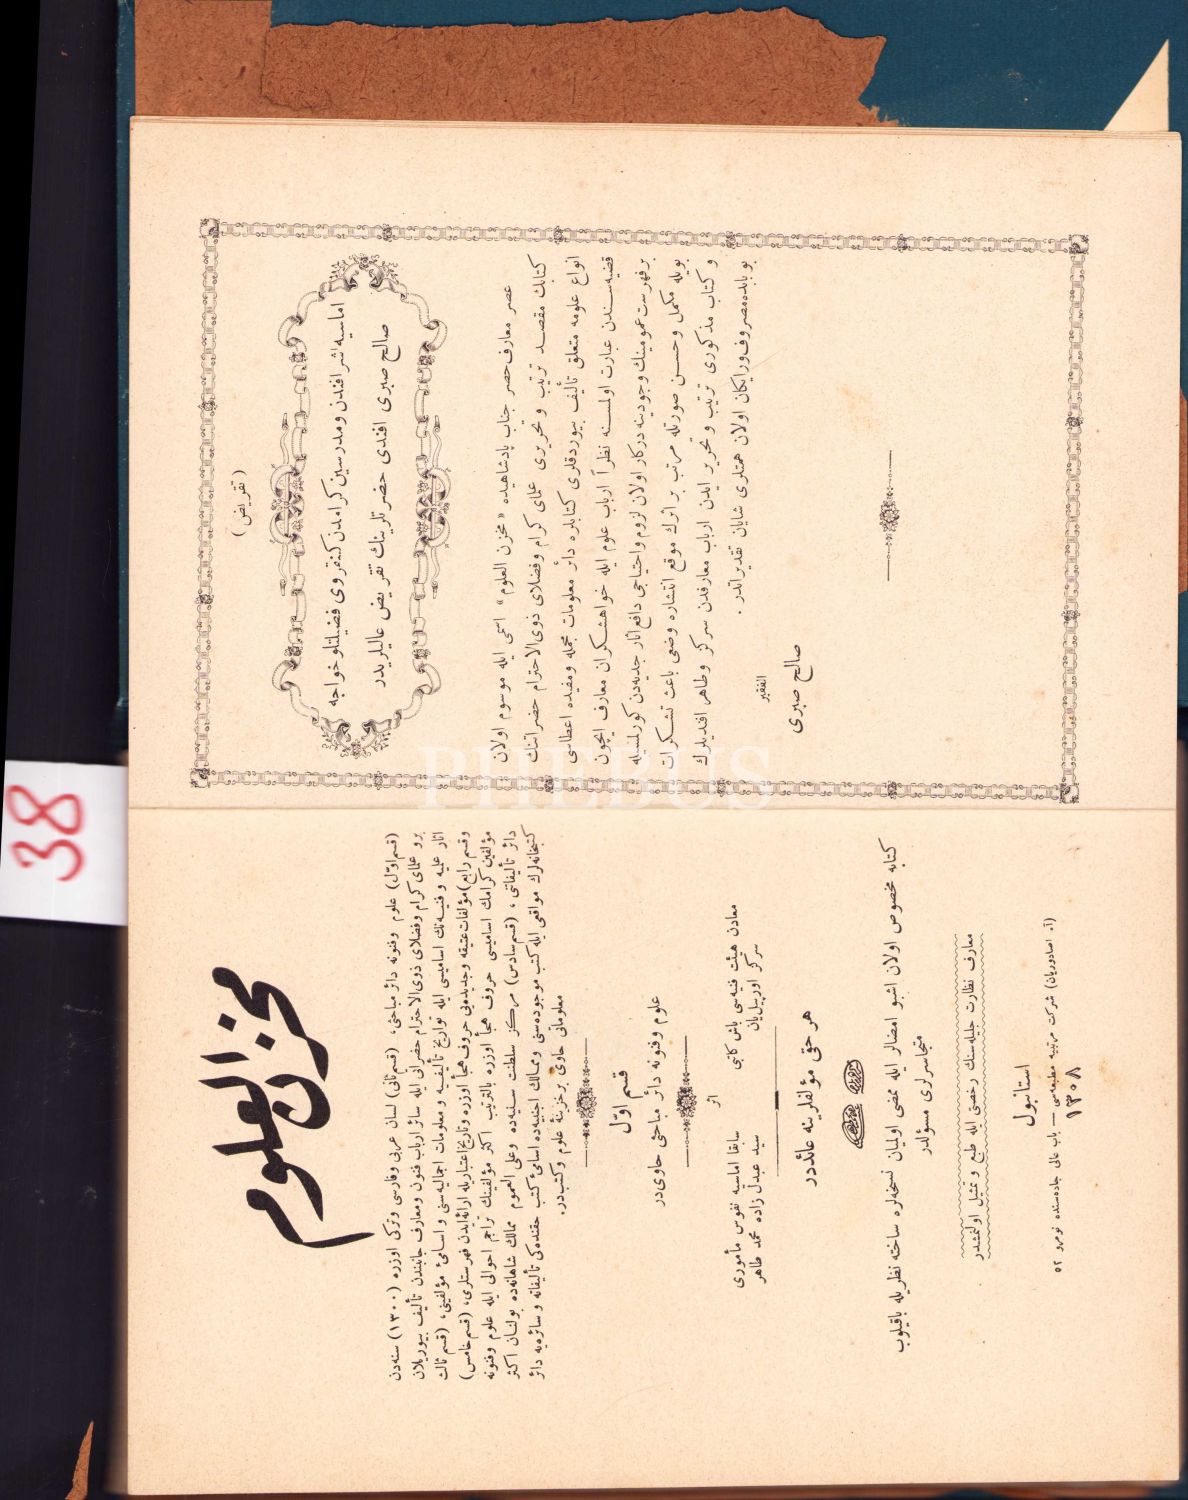 مخزن العلوم
(قسم اول) علوم وفنونه دائر مباحثی، (قسم ثانی) لسان عربی وفارسی وترکی اوزره (١٣٠٠) سنه‌دن
برو علمای کرام وفضلای ذوی‌الاحترام حضراتی ایله سائر ارباب فنون ومعارف جانبندن تألیف بیوریلان
آثار علمیه وفنیه‌نك اسامیسی ایله تواریخ تألیفیه و معلومات اجمالیه‌سنی و اسامیٔ مؤلفینی، (قسم ثالث
وقسم رابع) مؤلفات عتیقه وجدیده‌یی حروف هجا اوزره وتاریخ اعتباریله ارائه‌ایدن فهرستلری، (قسم خامس)
مؤلفین کرامك اسامیسی حروف هجا اوزره بالترتیب اکثر مؤلفینك تراجم احوالی ایله علوم وفنونه
دائر تألیفاتی، (قسم سادس) مرکز سلطنت سنیه‌ده وعلی العموم ممالك شاهانه‌ده بولنان اکثر
کتبخانه‌لرك مواقعی ایله کتب موجوده‌سنی وممالك اجنبیه‌ده اسامیٔ کتب حقنده‌کی تألیفاته و سائره‌یه دائر
معلوماتی حاوی برخزینهٔ علوم وکتبدر.
قسم اول
علوم وفنونه دائر مباحثی حاوی‌در
اثر
معادن هیئت فنیه‌سی باش کاتبی
سرکز اورپیلیان
سابقا اماسیه نفوس مأموری
سید عبدل زاده محمد طاهر
هر حقی مؤلفلرینه عائددر
کتابه مخصوص اولان اشبو امضالر ایله ممضی اولمیان نسخه‌لره ساخته نظریله باقیلوب
متجاسرلری مسؤلدر
معارف نظارت جلیله‌سنك رخصتی ایله طبع و تمثیل اولنمشدر
استانبول
(آ. اصادوریان) شرکت مرتبیه مطبعه‌سی — باب عالی جاده‌سنده نومرو ٥٢
١٣٠٨
(تقریض)
اماسیه اشرافندن ومدرسین کرامدن کنفروی فضیلتلو خواجه
صالح صبری افندی حضرتلرینك تقریض عالیلریدر
عصر معارف‌حصر جناب پادشاهیده «مخزن العلوم» اسمی ایله موسوم اولان
کتابك مقصد ترتیب و تحریری علمای کرام وفضلای ذوی‌الاحترام حضراتنك
انواع علومه متعلق تألیف بیوردقلری کتابلره دائر معلومات مجمله ومفیده اعطاسی
قضیه‌سندن عبارت اولمسنه نظراً ارباب علوم ایله خواهشکران معارف ایچون
برفهرست عمومینك وجودینه درکار اولان لزوم واحتیاجی دافع آثار جدیه‌دن کورلمسیله
بویله مکمل وحسن صورتله مرتب براثرك موقع انتشاره وضعی باعث تشکرات
و کتاب مذکوری ترتیب و تحریر ایدن ارباب معارفدن سرکز وطاهر افندیلرك
بوبابده مصروف ورایکان اولان همتلری شایان تقدیراتدر.
الفقیر
صالح صبری
PHEBUS
38